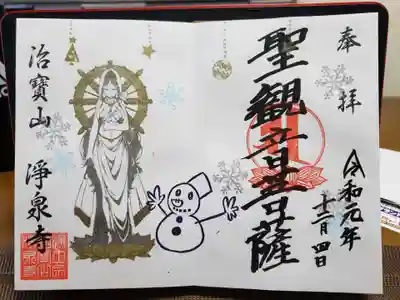 奉拝
令和元年
十二月四日
聖観音菩薩
治寶山 淨泉寺